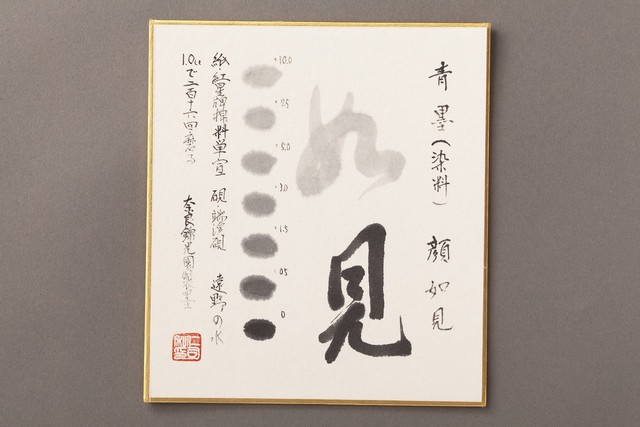 青墨（染料） 顔如見
如見
10.0
7.5
5.0
3.0
1.5
0.5
0
紙・紅星牌棉料単宣 硯・端渓硯 遠野の水
1.0ccで二百十六回磨る
奈良錦光園